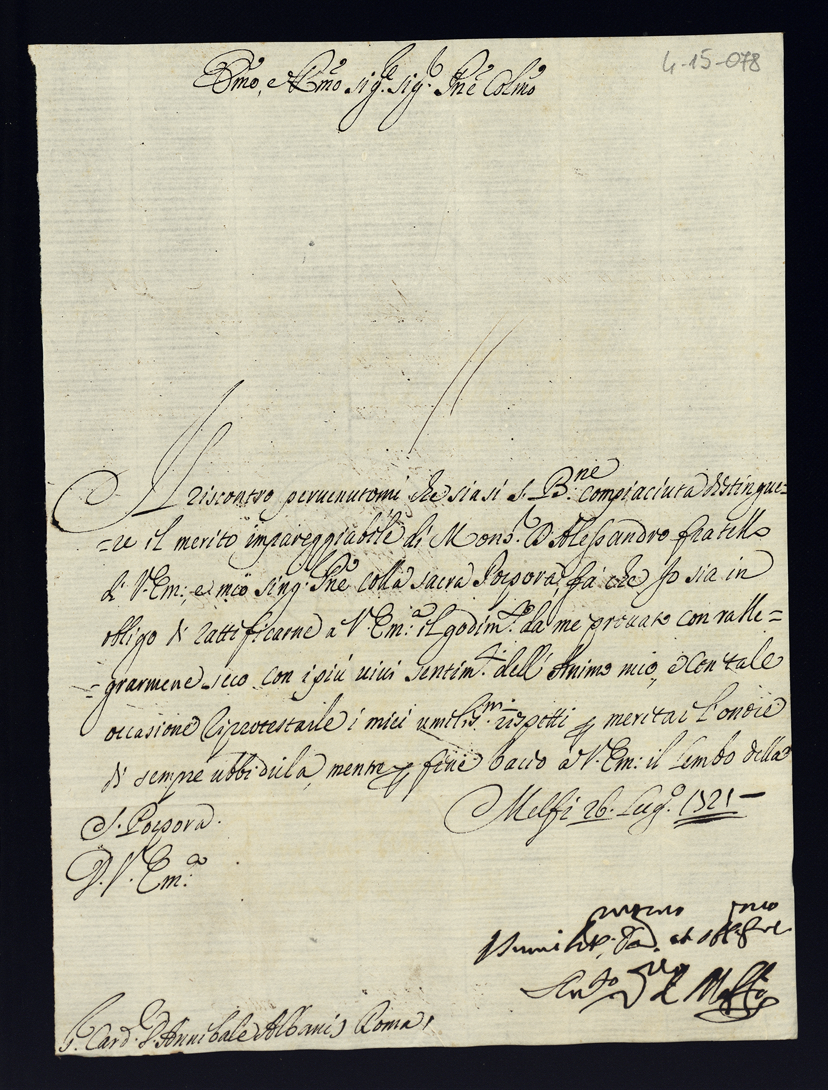 4-15-078
Emo, e Rmo sig.re sig.r Pne Colmo
Il riscontro pervenutomi che siasi S. B.ne compiaciuta distingue=
=re il merito impareggiabile di Mons.r D Alessandro fratello
di V. Em:, e mio sing. Pne colla sacra Porpora, fà che Io sia in
obligo di rattificarne a V. Em.a il godim.to da me provato con ralle=
=grarmene seco con i più vivi sentim.ti dell'Animo mio, e con tale
occasione riprotestarle i miei umilis.mi rispetti p meritar l'onore
di sempre ubbidirla, mentre p fine bacio a V. Em: il lembo della
S. Porpora.
Melfi 26. Lug.o 1721 —
D. V. Em.a
Ant.o
S. Card. D. Annibale Albani Roma